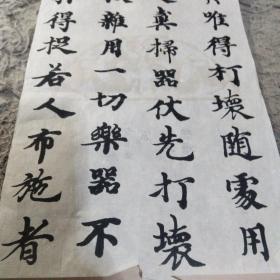 唯得打壞随處用
真掃器仗先打壞
雜用一切樂器不
得捉若人布施者